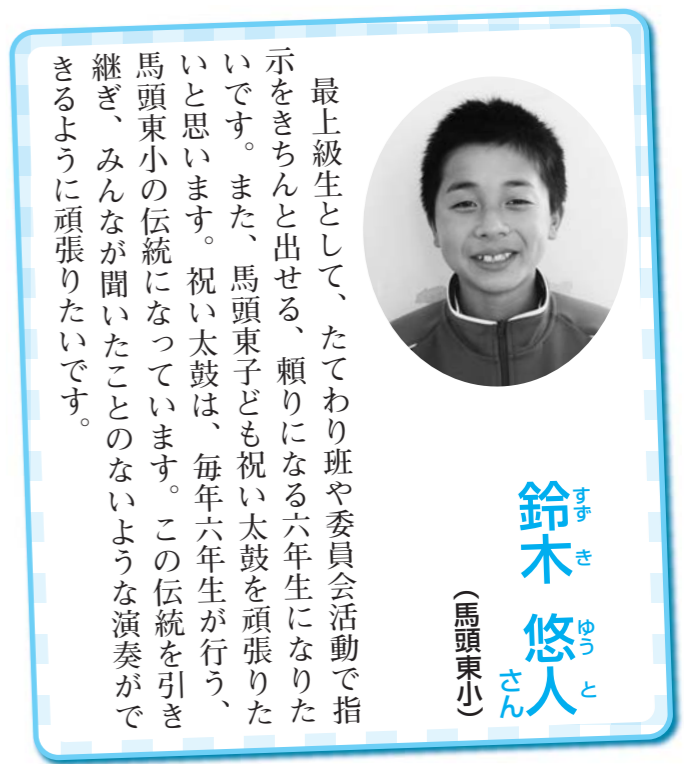 鈴木 悠人さん
すず き ゆう と
（馬頭東小）
最上級生として、たてわり班や委員会活動で指
示をきちんと出せる、頼りになる六年生になりた
いです。また、馬頭東子ども祝い太鼓を頑張りた
いと思います。祝い太鼓は、毎年六年生が行う、
馬頭東小の伝統になっています。この伝統を引き
継ぎ、みんなが聞いたことのないような演奏がで
きるように頑張りたいです。